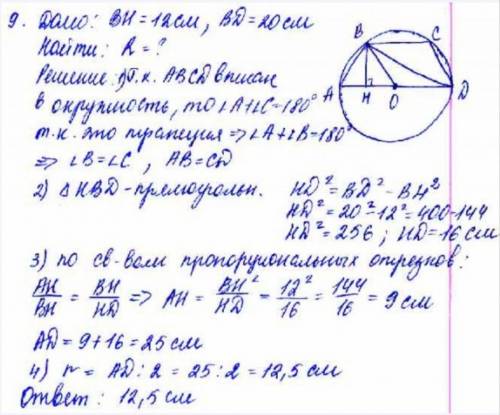 9. Дано: BH = 12 см, BD = 20 см
Найти: R = ?
Решение: 1) Т.к. ABCD вписан
в окружность, то ∠A+∠C=180°
т.к. это трапеция ⇒ ∠A+∠B=180°
⇒ ∠B=∠C, AB=CD
B
C
A
H
O
D
2) △HBD - прямоугольн.
HD² = BD² - BH²
HD² = 20² - 12² = 400 - 144
HD² = 256 ; HD = 16 см
3) по св-вам пропорциональных отрезков:
AH/BH = BH/HD ⇒ AH = BH²/HD = 12²/16 = 144/16 = 9 см
AD = 9 + 16 = 25 см
4) r = AD : 2 = 25 : 2 = 12,5 см
Ответ: 12,5 см